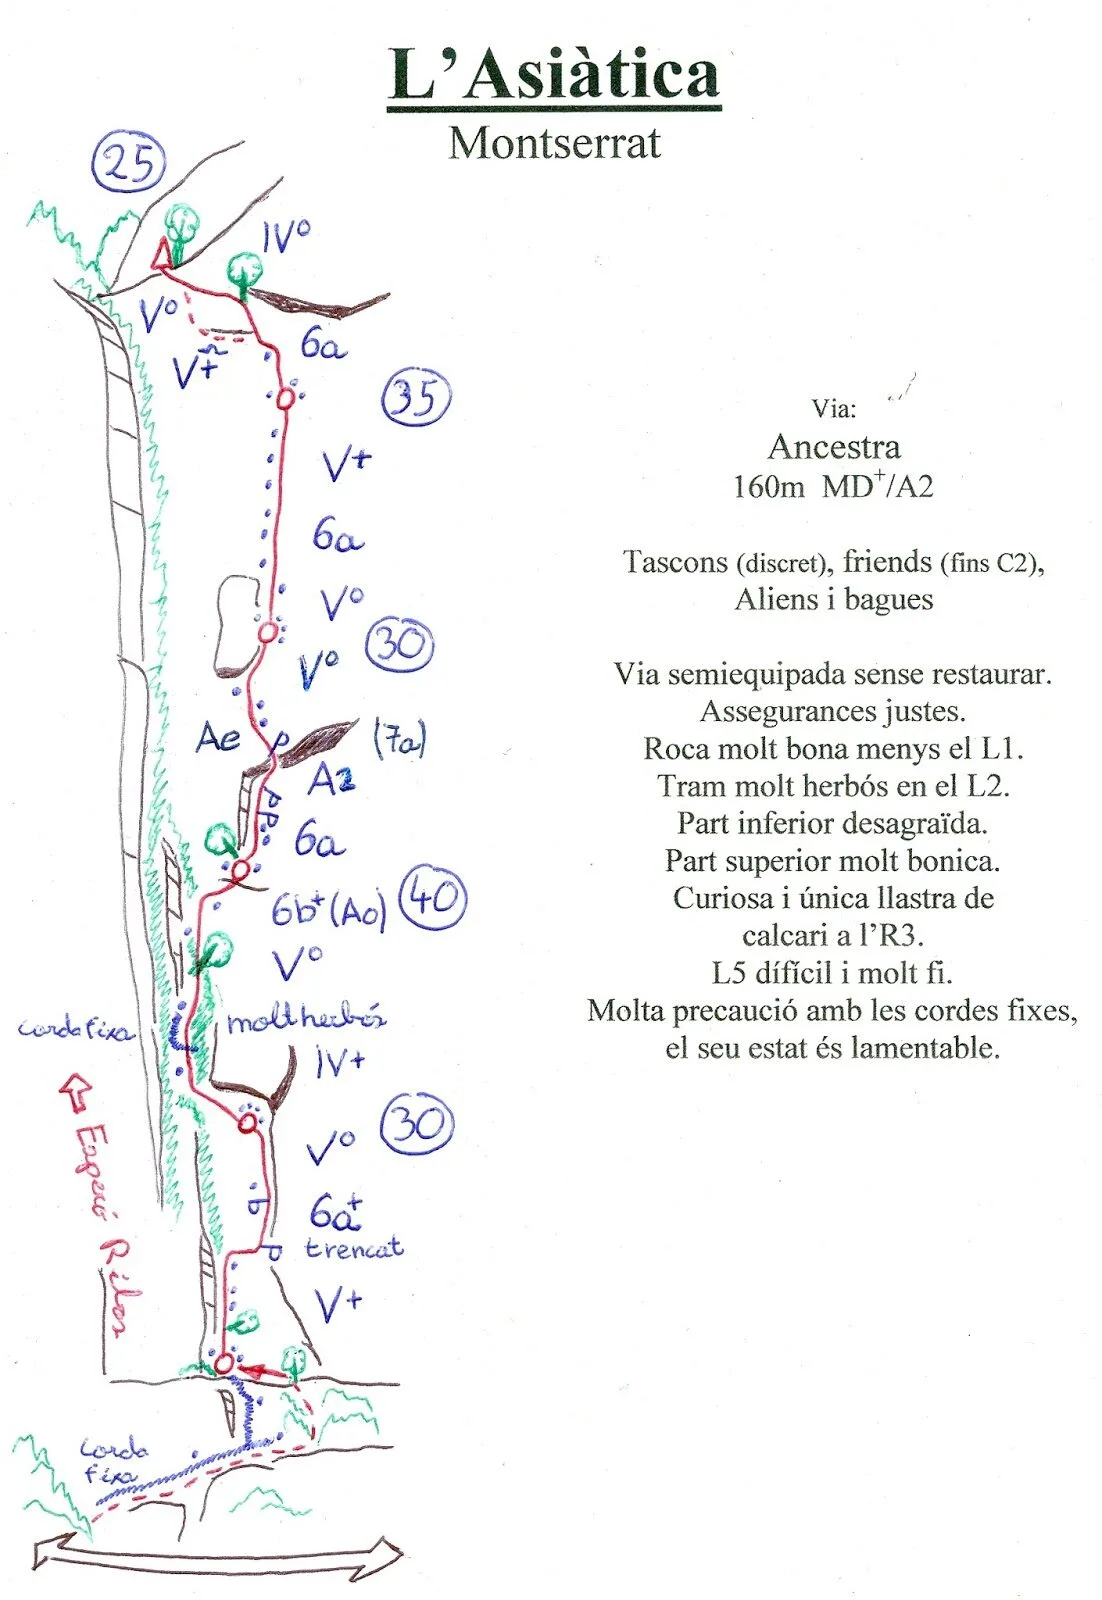 L’Asiàtica
Montserrat
25
IVº
Vº
V+
6a
35
V+
6a
Vº
30
Vº
Ae
(7a)
A2
6a
6b+(Ao)
40
Vº
corda fixa
molt herbós
IV+
30
Vº
6a+
trencat
V+
Esperó Ribas
corda
fixa
Via:
Ancestra
160m MD+/A2
Tascons (discret), friends (fins C2),
Aliens i bagues
Via semiequipada sense restaurar.
Assegurances justes.
Roca molt bona menys el L1.
Tram molt herbós en el L2.
Part inferior desagraïda.
Part superior molt bonica.
Curiosa i única llastra de
calcari a l’R3.
L5 díficil i molt fi.
Molta precaució amb les cordes fixes,
el seu estat és lamentable.